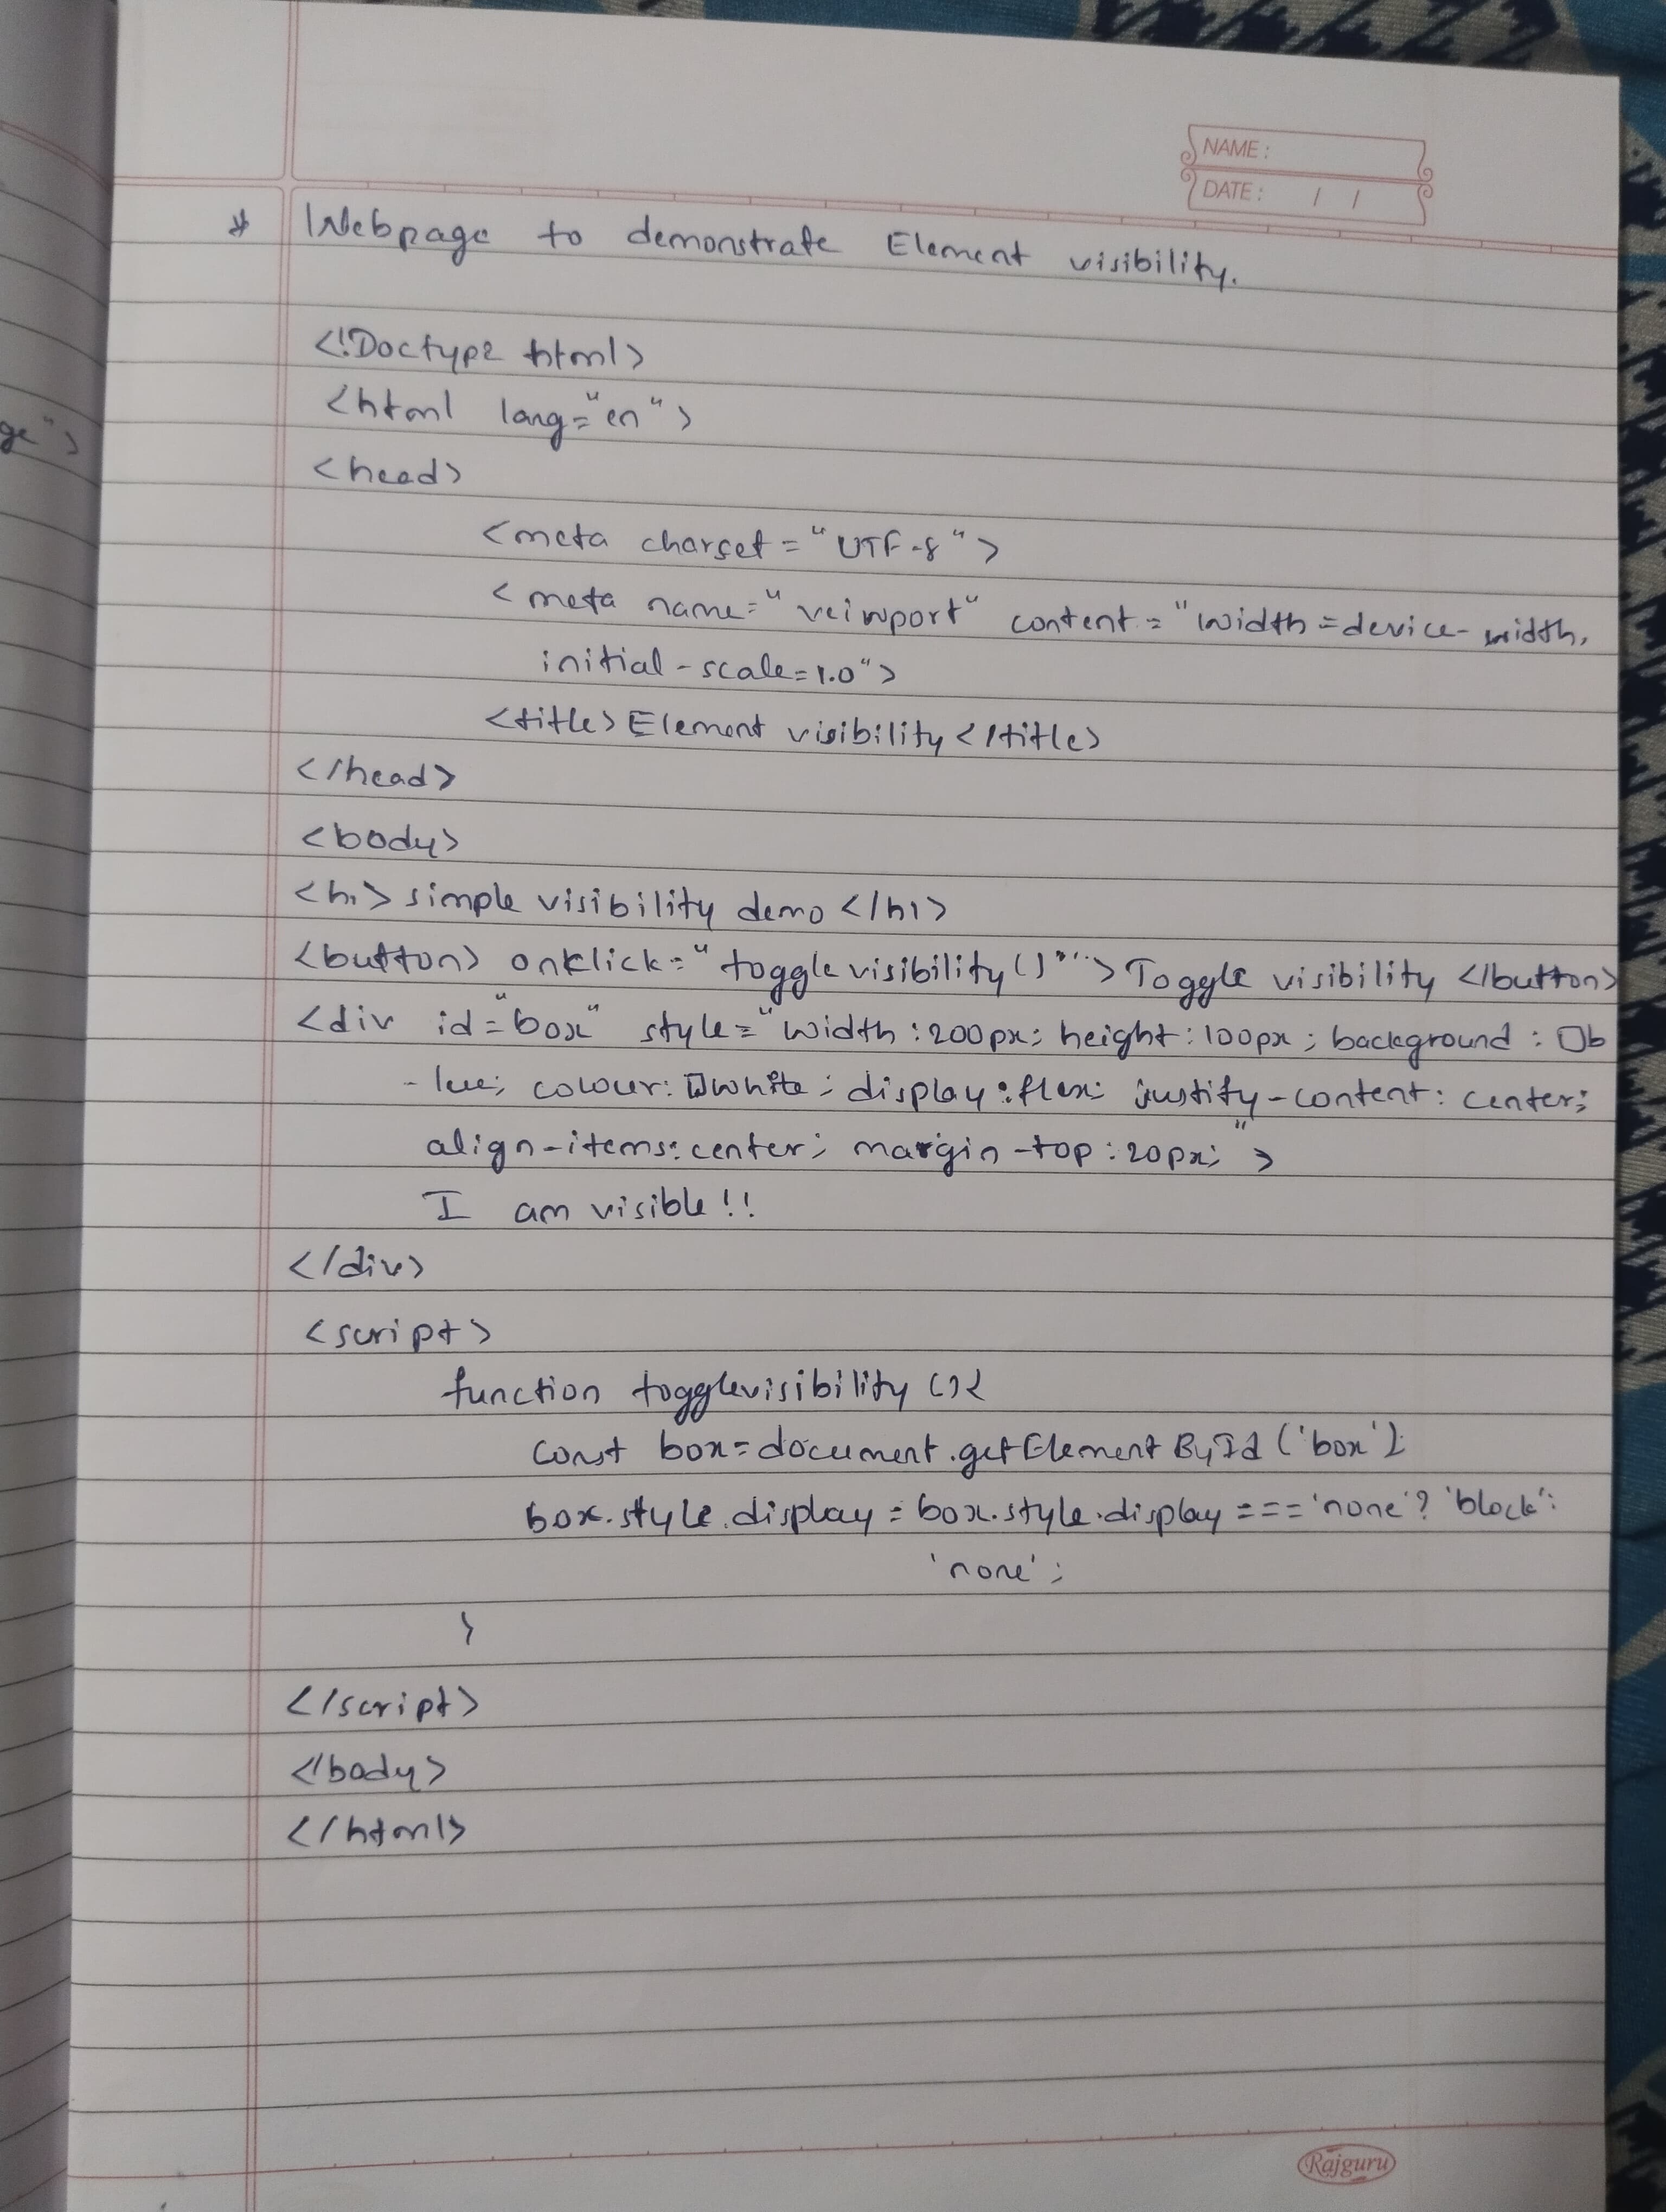 NAME :
DATE : / /
* Webpage to demonstrate Element visibility.
<!Doctype html>
<html lang="en">
ge">
<head>
<meta charset="UTF-8">
<meta name="veiwport" content="width=device-width,
initial-scale=1.0">
<title>Element visibility</title>
</head>
<body>
<h1>simple visibility demo</h1>
<button> onklick="togglevisibility()"">Toggle visibility </button>
<div id="box" style="width:200px; height:100px; background: □b
-lue; colour: □white; display:flex; justify-content: center;
align-items:center; margin-top:20px;">
I am visible!!
</div>
<script>
function togglevisibility(){
const box=document.getElementById('box');
box.style.display=box.style.display==='none'?'block':
'none';
}
</script>
</body>
</html>
Rajguru